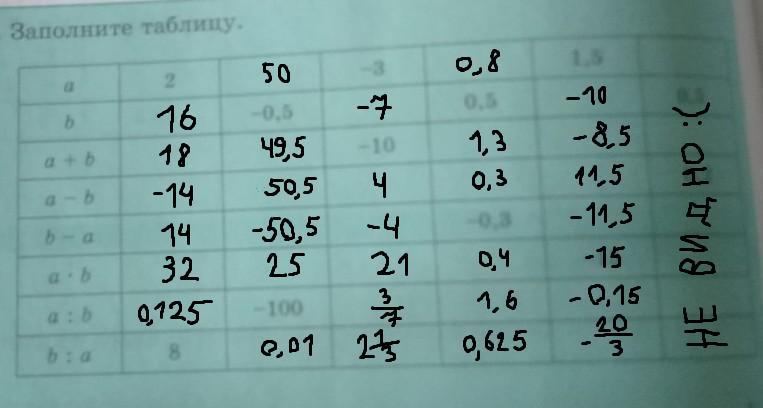 Заполните таблицу.
a 2 50 -3 0,8 1,5
b 16 -0,5 -7 0,5 -10 0,5
a + b 18 49,5 -10 1,3 -8,5
a - b -14 50,5 4 0,3 11,5
b - a 14 -50,5 -4 -0,3 -11,5
a · b 32 25 21 0,4 -15
a : b 0,125 -100 3/7 1,6 -0,15
b : a 8 0,01 2 1/3 0,625 -20/3
НЕ ВИДНО :(